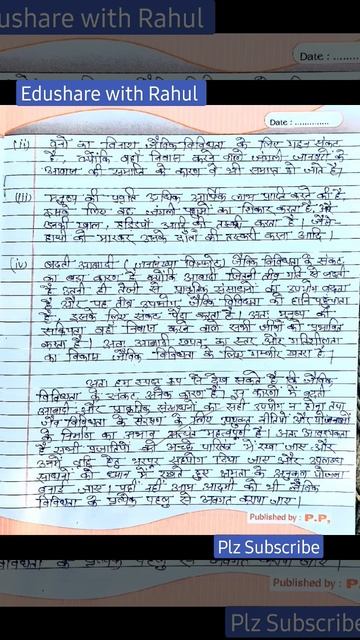 Edushare with Rahul
Date :
Edushare with Rahul
Date : ............
(ii) वनो का विनाश जैविक विविधता के लिए गहन संकट
है, क्योंकि वहाँ निवास करने वाले जंगली जानवरों के
आवास की समाप्ति के कारण वे भी समाप्त हो जाते है।
(iii) मनुष्य की प्रवृति अधिक आर्थिक लाभ प्राप्ति करने की है,
इसके लिए वह जंगली पशुओं का शिकार करता है, और
उनकी खाल, हड्डियों आदि की तस्करी करता है। जैसे
हाथी को मारकर उसके दाँतों की तस्करी करना आदि।
(iv) बढ़ती आबादी (जनसंख्या विस्फोट) जैविक विविधता के संकट
का बड़ा कारण है क्योंकि आबादी जितनी तीव्र गति से बढ़ती
है उतनी ही तेजी से प्राकृतिक संसाधनों का उपयोग बढ़ता
है और यह तीव्र उपयोग जैव विविधता को हानि पहुँचाता
है, इसके लिए संकट पैदा करता है। अतः मनुष्य की
सक्रियता वहाँ निवास करने वाले सभी जीवों को प्रभावित
करता है। अतः आबादी का स्तर और गतिशीलता
का विकास जैविक विविधता के लिए गम्भीर खतरा है।
अतः हम स्पष्ट रूप से देख सकते है की जैविक
विविधता के संकट अनेक कारण है। इन कारणों में बढ़ती
आबादी और प्राकृतिक संसाधनों का सही उपयोग न होना तथा
जैव विविधता के संरक्षण के लिए उपयुक्त नीतियों और योजनाओं
के निर्माण का अभाव अत्यंत महत्वपूर्ण है। अतः आवश्यकता
है सभी प्रजातियों को में रखा जाए और
उनमें वृद्धि हेतु भरपूर सहयोग दिया जाए और उपलब्ध
साधनों को ध्यान में रखते हुए क्षमता के अनुकूल योजना
बनाई जाए। यही नहीं आम आदमी को भी जैविक
विविधता के प्रत्येक पहलू से अवगत कराया जाए।
Published by : P.P.
Plz Subscribe
Published by : P.P.
Plz Subscribe